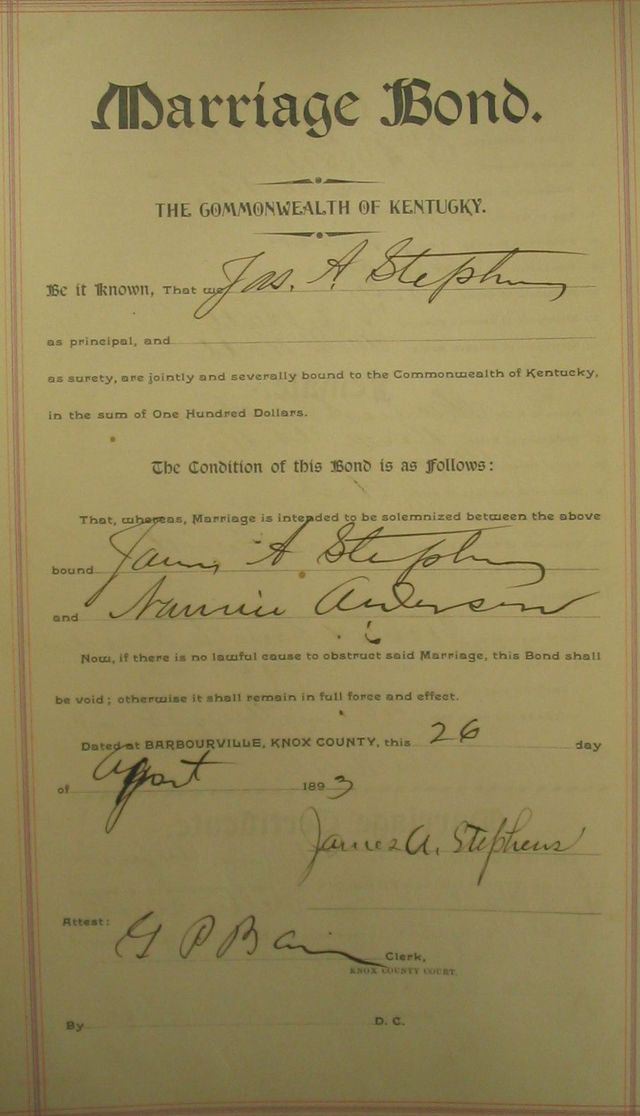 Marriage Bond.
THE COMMONWEALTH OF KENTUCKY.
Be it Known, That we Jas. A. Stephens
as principal, and
as surety, are jointly and severally bound to the Commonwealth of Kentucky,
in the sum of One Hundred Dollars.
The Condition of this Bond is as Follows:
That, whereas, Marriage is intended to be solemnized between the above
bound James A Stephens
and Nannie Anderson
Now, if there is no lawful cause to obstruct said Marriage, this Bond shall
be void; otherwise it shall remain in full force and effect.
Dated at BARBOURVILLE, KNOX COUNTY, this 26 day
of 1893
James A. Stephens
Attest:
G P Bain Clerk,
KNOX COUNTY COURT.
By D. C.